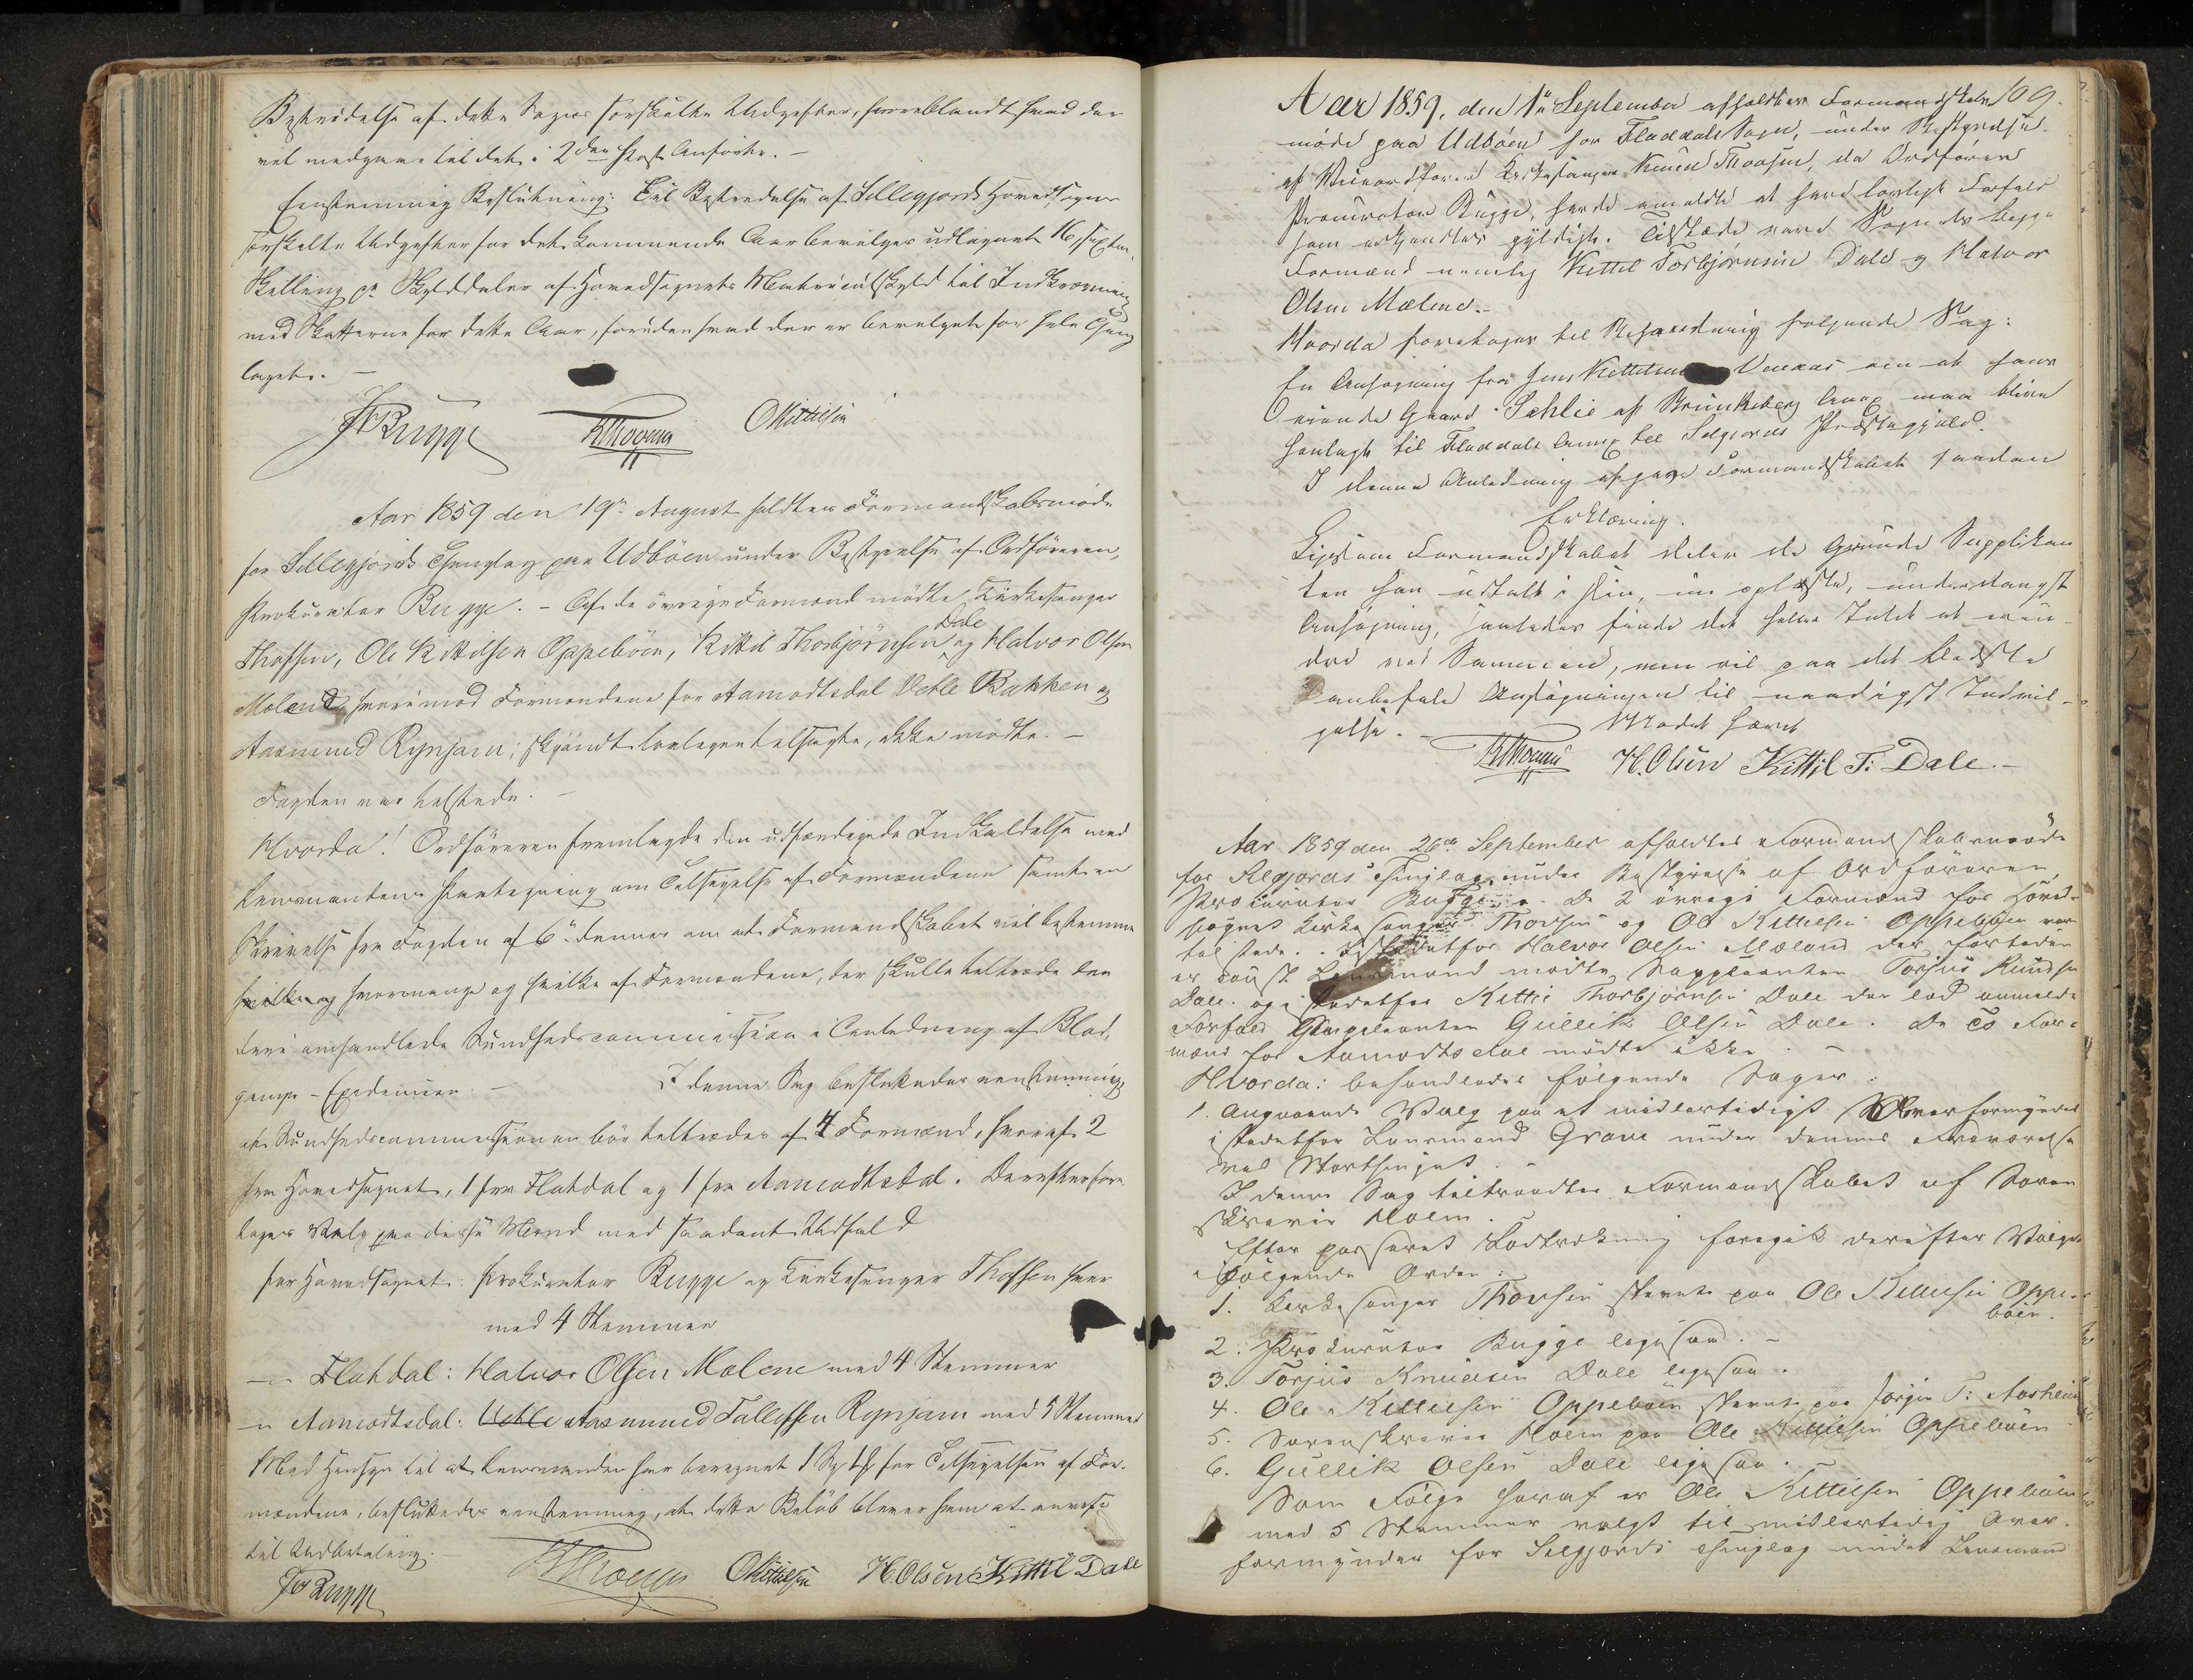 Bestridelse af dette Sogns særskilte Udgifter, hvoriblandt hvad der
vil medgaae til det i 2den Post Anførte. –
Eenstemmig Beslutning: Til Bestridelse af Sillegjords Hovedsogns
særskilte Udgifter for det kommende Aar bevilges udlignet 16, sexten,
Skilling pr Skylddaler af Hovedsognets Matriculskyld til Indkrævning
med Skatterne for dette Aar, foruden hvad der er bevilget for hele Thing
laget. –
Bugge KThovsen OKittilsen
Aar 1859 den 19de August holdtes Formandskabsmøde
for Sillegjords Thinglag paa Udböen under Bestyrelse af Ordføreren,
Prokurator Bugge. – Af de övrige Formænd mødte Kirkesanger
Thofsen, Ole Kittilsen Oppeböen, Kittil Thorbjörnsen Dale og Halvor Olsen
Mælene, hvorimod Formændene for Aamodtsdal Vetle Bakken og
Aasmund Rynjam, skjöndt lovligen tilsagte, ikke mødte. –
Fogden var tilstede. –
Hvorda! Ordføreren fremlagde den udfærdigede Indkaldelse med
Lensmandens Paategning om Tilsigelse af Formændene samt en
Skrivelse fra Fogden af 6te dennes om at Formandskabet vil bestemme
hvilke og hvormange og hvilke af Formændene, der skulle tiltræde den
deri omhandlede Sundhedscommission i Anledning af Blod-
gangs-Epidemien. – I denne Sag besluttedes eenstemmig
at Sundhedscommissionen bör tiltrædes af 4 Formænd, hvoraf 2
fra Hovedsognet, 1 fra Flatdal og 1 fra Aamodtsdal. Derefter fore-
toges Valg paa disse Mænd med saadant Udfald
for Hovedsognet: Prokurator Bugge og Kirkesanger Thofsen hver
med 4 Stemmer
– " – Flatdal: Halvor Olsen Mælene med 4 Stemmer
– " Aamodtsdal: Vetle Aasmund Tallefsen Rynjam med 5 Stemmer
Med Hensyn til at Lensmanden har beregnet 1 Sp for Tilsigelsen af For-
mændene, besluttedes eenstemmig, at dette Beløb bliver ham at anvise
til Udbetaling. –
Bugge KThovsen OKittilsen HOlsen Kittil Dale
Aar 1859, den 1te September afholdtes Formandskabs 109.
møde paa Udböen for Fladdals Sogn, under Bestyrelse
af Viceordfører Kirkesanger Knud Thovsen, da Ordføreren
Procurator Bugge, havde anmeldt at have lovligt Forfald
som ansaaes gyldigt. Tilstæde vare Sognets begge
Formænd nemlig Kittil Torbjørnsen Dale og Halvor
Olsen Mælene. –
Hvorda foretoges til Behandling følgende Sag:
En Ansøgning fra Jens Kittilsen Venaas om at hans
eiende Gaard Sehlie af Brunkeberg Annex maa blive
henlagt til Fladdals Annex til Selgjords Præstegjæld.
I denne Anledning afgav Formandskabet saadan
Erklæring.
Ligesom Formandskabet deler de Grunde Supplikan
ten har udtalt i sin, nu oplæste, underdanigst
Ansøgning, saaledes finde det heller Intet at erin-
dre ved Sammen, men vil paa det bedste
anbefale Ansøgningen til naadigst Indvil-
gelse. – Mødet hævet
KThovsen H. Olsen Kittil T: Dale. –
Aar 1859 den 26de September afholdtes Formandskabsmøde
for Selgjords Thinglag under Bestyrelse af Ordføreren,
Procurator Bugge. De 2 øvrige Formænd for Hoved-
sognet Kirkesanger Thovsen og Ole Kittilsen Oppebøen var
tilstede. Istedetfor Halvor Olsen Mæland der fortiden
er mødte Suppleanten Torjus Knudsen
Dale. og istedetfor Kittil Thorbjørnsen Dale der lod anmelde
Forfald Suppleanten Gullik Olsen Dale. De to For-
mænd for Aamodtsdal mødte ikke. –
Hvorda: behandledes følgende Sager:
1. Angaaende Valg paa et midlertidigt Overformynder
istedetfor Lensmand Grave under dennes Fraværelse
ved Storthinget. –
I denne Sag tiltraadtes Formandskabet af Soren
skriver Holm.
Efter passeret Lodtrekning foregik derefter Valget
i følgende Orden:
1. Kirkesanger Thovsen stemte paa Ole Kittilsen Oppe-
bøen.
2. Prokurator Bugge ligesaa. –
3. Torjus Knudsen Dale ligesaa.
4. Ole Kittilsen Oppebøen stemte paa Jørgen T: Aasheim
5. Sorenskriver Holm paa Ole Kittilsen Oppebøen
6. Gullik Olsen Dale ligesaa.
Som Følge heraf er Ole Kittilsen Oppebøen
med 5 Stemmer valgt til midlertidig Over-
formynder for Selgjords Thinglag under Lensmand